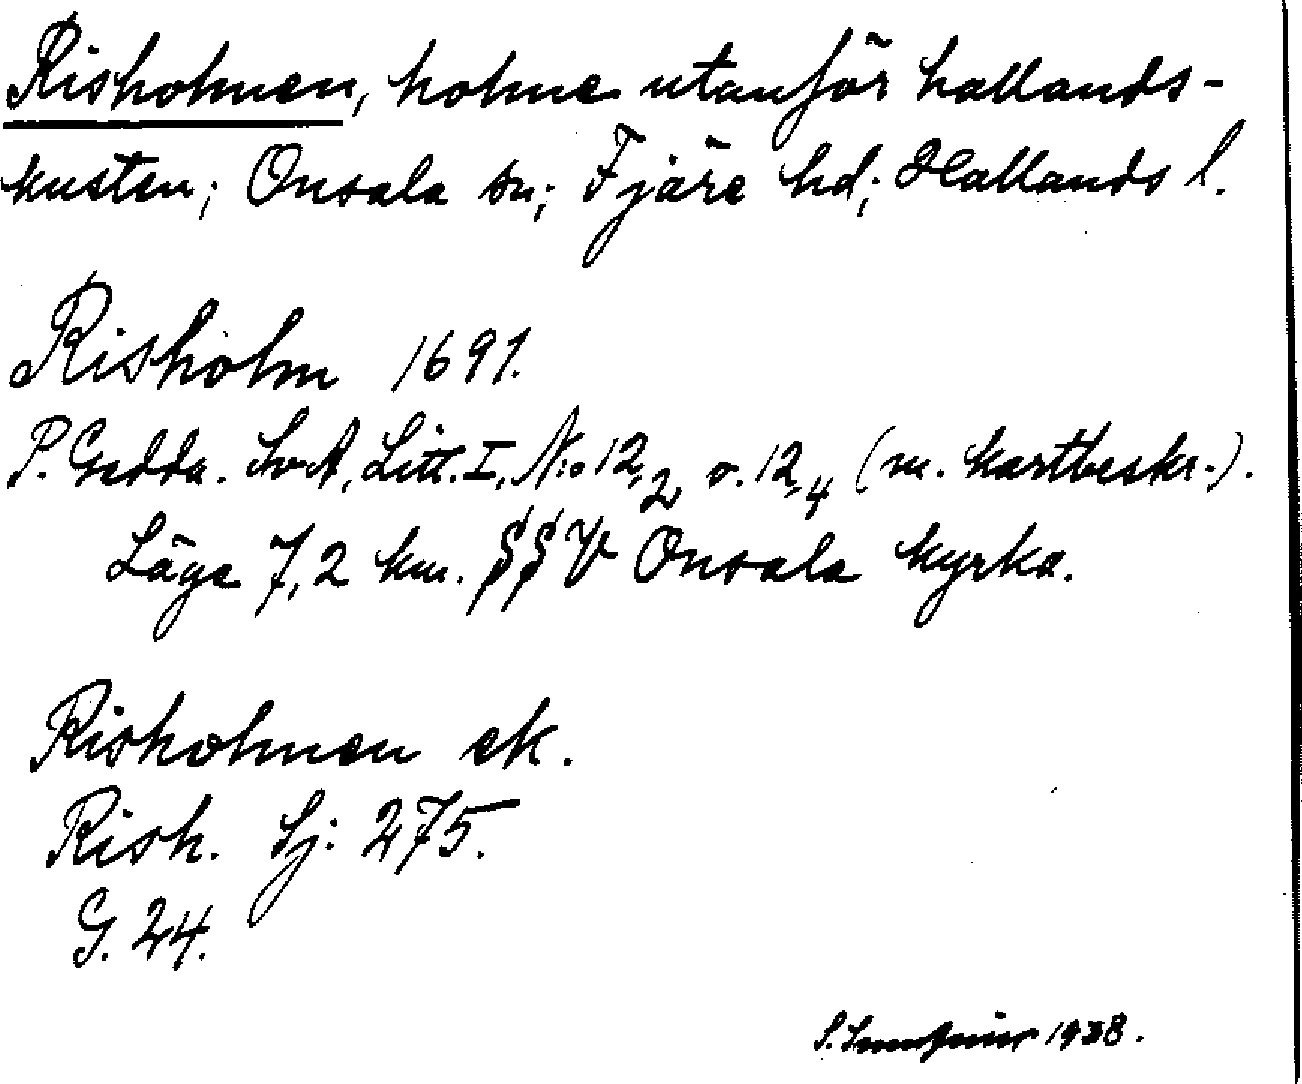 Risholmen, holme utanför hallands-
kusten; Onsala sn; Fjäre hd; Hallands l.
Risholm 1691.
P. Gedda. SvA, Litt. I, N:o 12,2 o. 12,4 (m. kartbeskr.).
Läge 7,2 km. SSV Onsala kyrka.
Risholmen ek.
Rish. Sj: 275.
G. 24.
S. 1938.